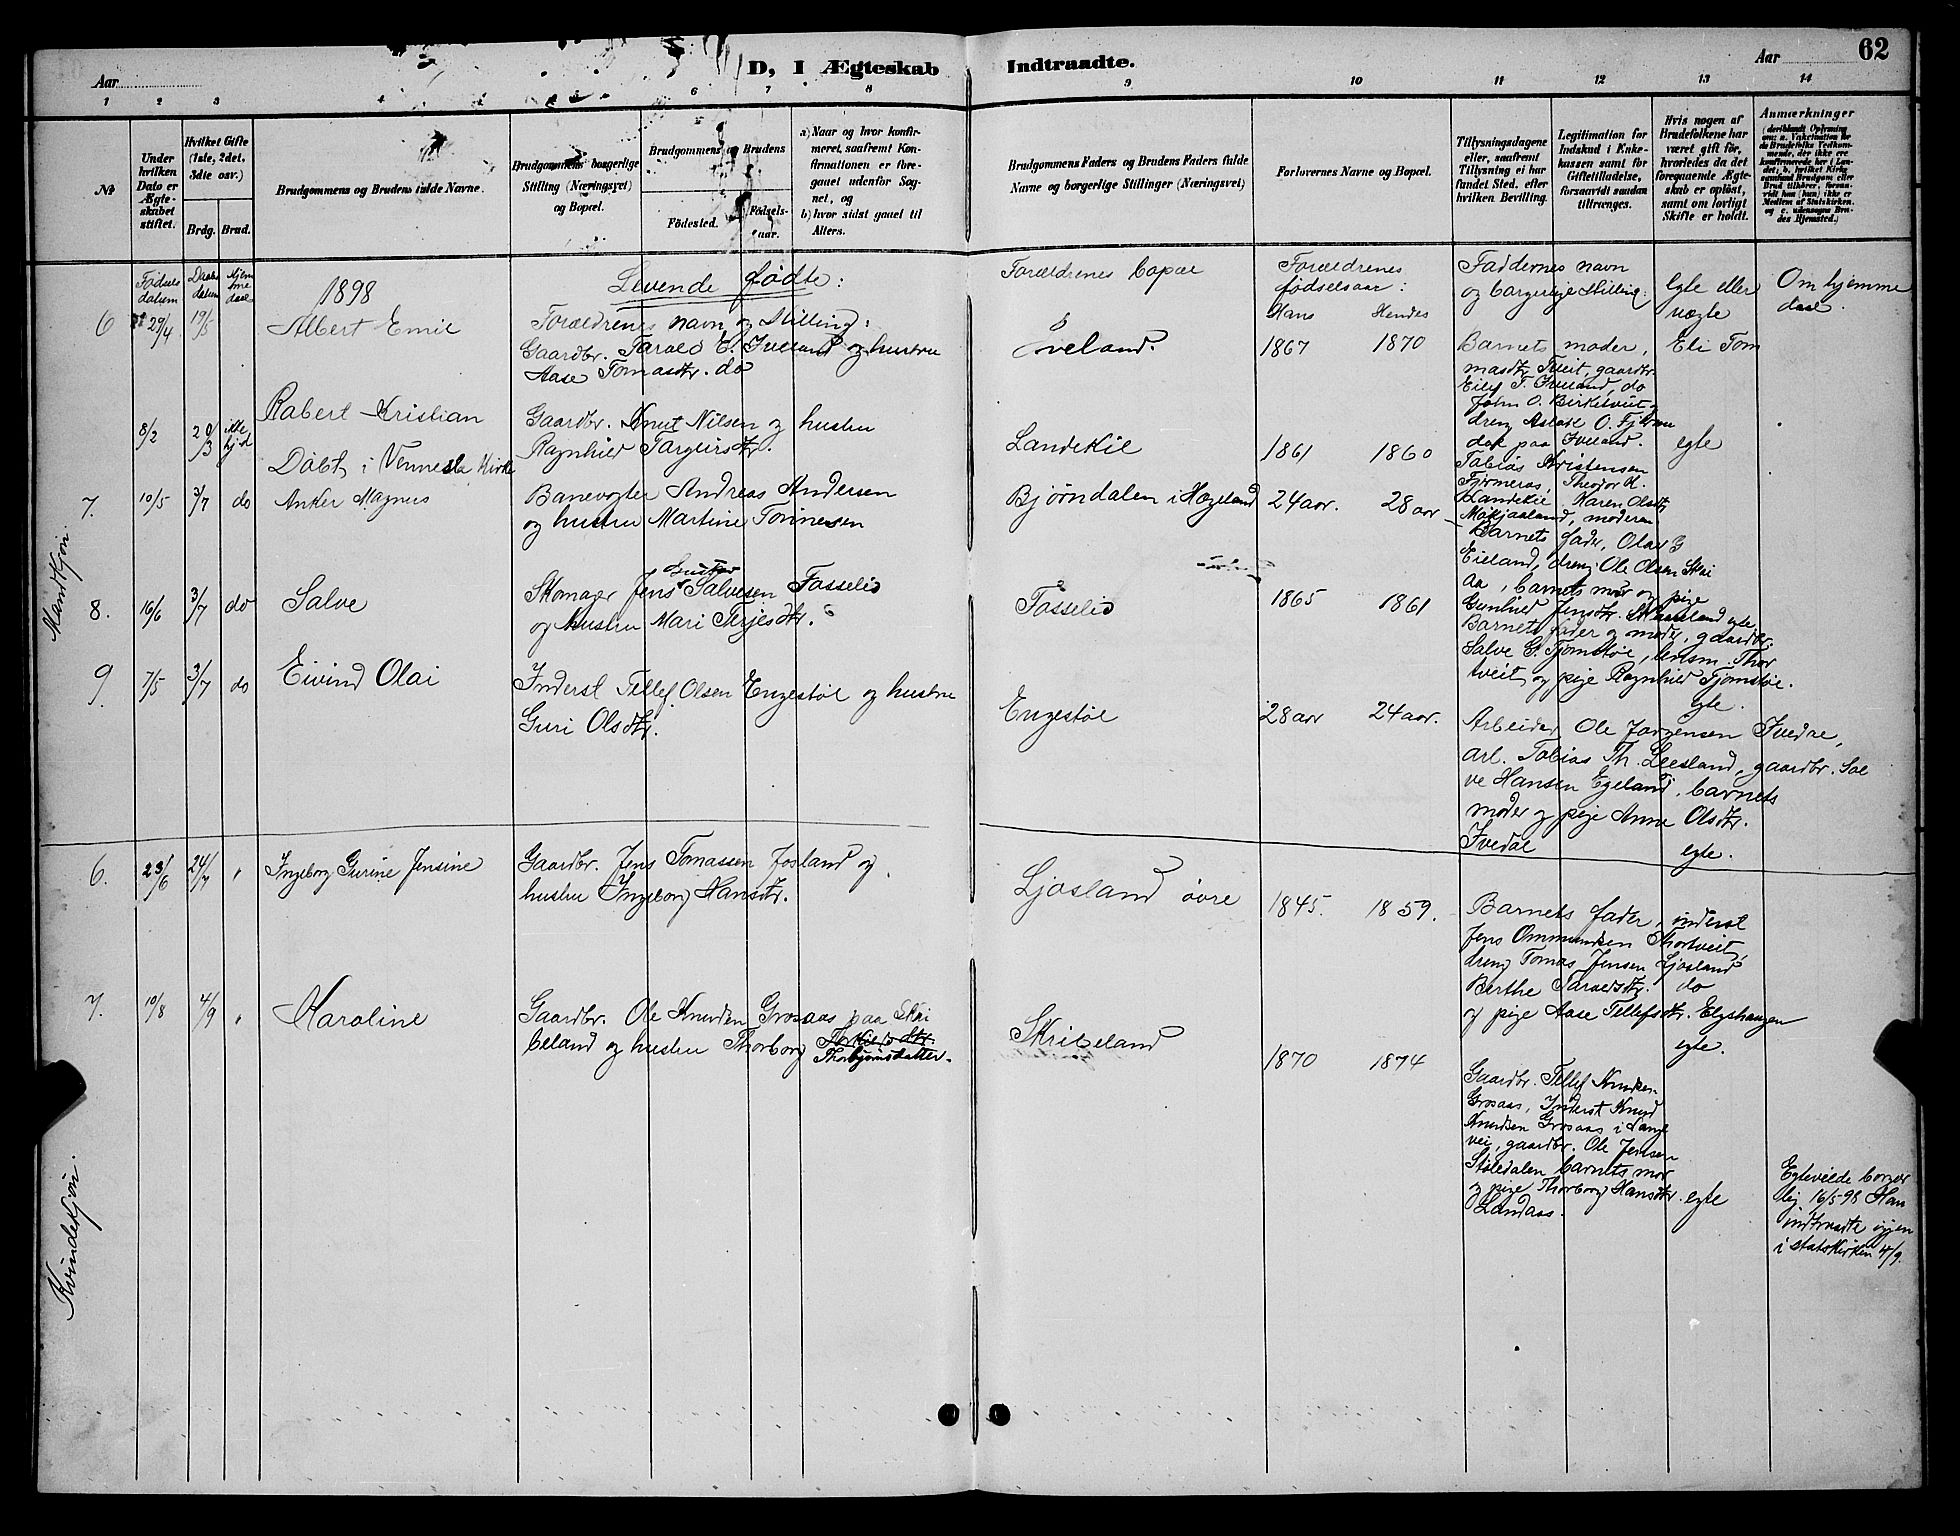 62
D, I Ægteskab Indtraadte.
Aar
Aar
1 2 3 4 5 6 7 8 9 10 11 12 13 14
№
Under hvilken Dato er Ægteskabet stiftet.
Hvilket Gifte (1ste, 2det, 3die osv.)
Brdg. Brud.
Brudgommens og Brudens fulde Navne.
Brudgommens borgerlige Stilling (Næringsvei) og Bopæl.
Brudgommens og Brudens
Fødested.
Fødsels-aar.
a) Naar og hvor konfirmeret, saafremt Konfirmationen er foregaaet udenfor Sognet, og
b) hvor sidst gaaet til Alters.
Brudgommens Faders og Brudens Faders fulde Navne og borgerlige Stillinger (Næringsvei)
Forlovernes Navne og Bopæl.
Tillysningsdagene eller, saafremt Tillysning ei har fundet Sted, efter hvilken Bevilling.
Legitimation for Indskud i Enkekassen samt for Giftetilladelse, forsaavidt saadan tiltrænges.
Hvis nogen af Brudefolkene har været gift før, hvorledes da det foregaaende Ægteskab er opløst, samt om lovligt Skifte er holdt.
Anmærkninger
Fødsels datum
Daabs datum
Hjemme daab
1898
Levende fødte:
Forældrenes navn og Stilling:
Forældrenes bopæl
Forældrenes fødselsaar:
Hans Hendes
Faddernes navn og borgerlige Stilling:
Egte eller uægte
Om hjemme daab.
6 29/4 19/5 Albert Emil
Gaardbr. Tarald E. Iveland og hustru
Aase Tomasdtr. do
Iveland. 1867 1870
Barnets moder, Eli Tom
masdtr. Tveit, gaardbr.
Eilef T. Iveland, do
John O. Birketveit
dreng Aslak O. Fjerme
dal paa Iveland. egte
8/2 20/3 ikke hj.d Robert Kristian
Gaardbr. Knut Nilsen og hustru
Ragnhild Targeirsdtr.
Døbt i Vennesla Kirke
Landekil 1861 1860
Tobias Kristensen
Fjermeros, Theodor K.
Landekil Karen Olsdtr
Mokjaaland, moderen
7. 10/5 3/7 do Anker Magnus
Banevogter Andreas Andersen
og hustru Martine Tønnesen
Bjørndalen i Hægeland 24 aar. 28 aar
Barnets fader, Olav G
Eieland, dreng Ole Olsen Skai
aa, barnets mor og pige
Gunhild Jensdtr. Skailand egte
Mandkjøn
8. 16/6 3/7 do Salve
Skomager Jens Salvesen Fosselid
og hustru Mari Terjesdtr.
Fosselid 1865 1861
Barnets fader og moder, gaardbr.
Salve G. Tjomstøl, lensm. Thor
tveit og pige Ragnhild Tjomstøl.
egte.
9. 7/5 3/7 do Eivind Olai
Inderst Tellef Olsen Engestøl og hustru
Guri Olsdtr.
Engestøl 28 aar 24 aar.
Arbeider Ole Jørgensen Ivedal,
arb. Tobias Th. Leesland, gaardbr. Sal
ve Hansen Egeland, barnets
moder og pige Anne Olsdtr.
Ivedal egte.
6. 23/6 24/7 " Ingeborg Gurine Jensine
Gaardbr. Jens Tomassen Josland og
hustru Ingeborg Hansdtr.
Ljosland øvre 1845. 1859.
Barnets fader, inderst
Jens Ommundsen Thortveit,
dreng Tomas Jensen Ljosland
Berthe Taraldsdtr. do
og pige Aase Tellefsdtr. Elgshaugen
egte.
7. 10/8 4/9 " Karoline
Gaardbr. Ole Knudsen Grosaas paa Skri
beland og hustru Thorborg Thorbjørnsdatter.
Skribeland
1870 1874
Gaardbr. Tellef Knudsen
Grosaas, Inderst Knud
Knudsen Grosaas i Lange
vei, gaardbr. Ole Jensen
Støledalen barnets mor
og pige Thorborg Hansdtr.
Landaas. egte
Egteviede borger
lig 16/5 98 Han
indtraadte igjen
i statskirken 4/9.
Kvindekjøn.